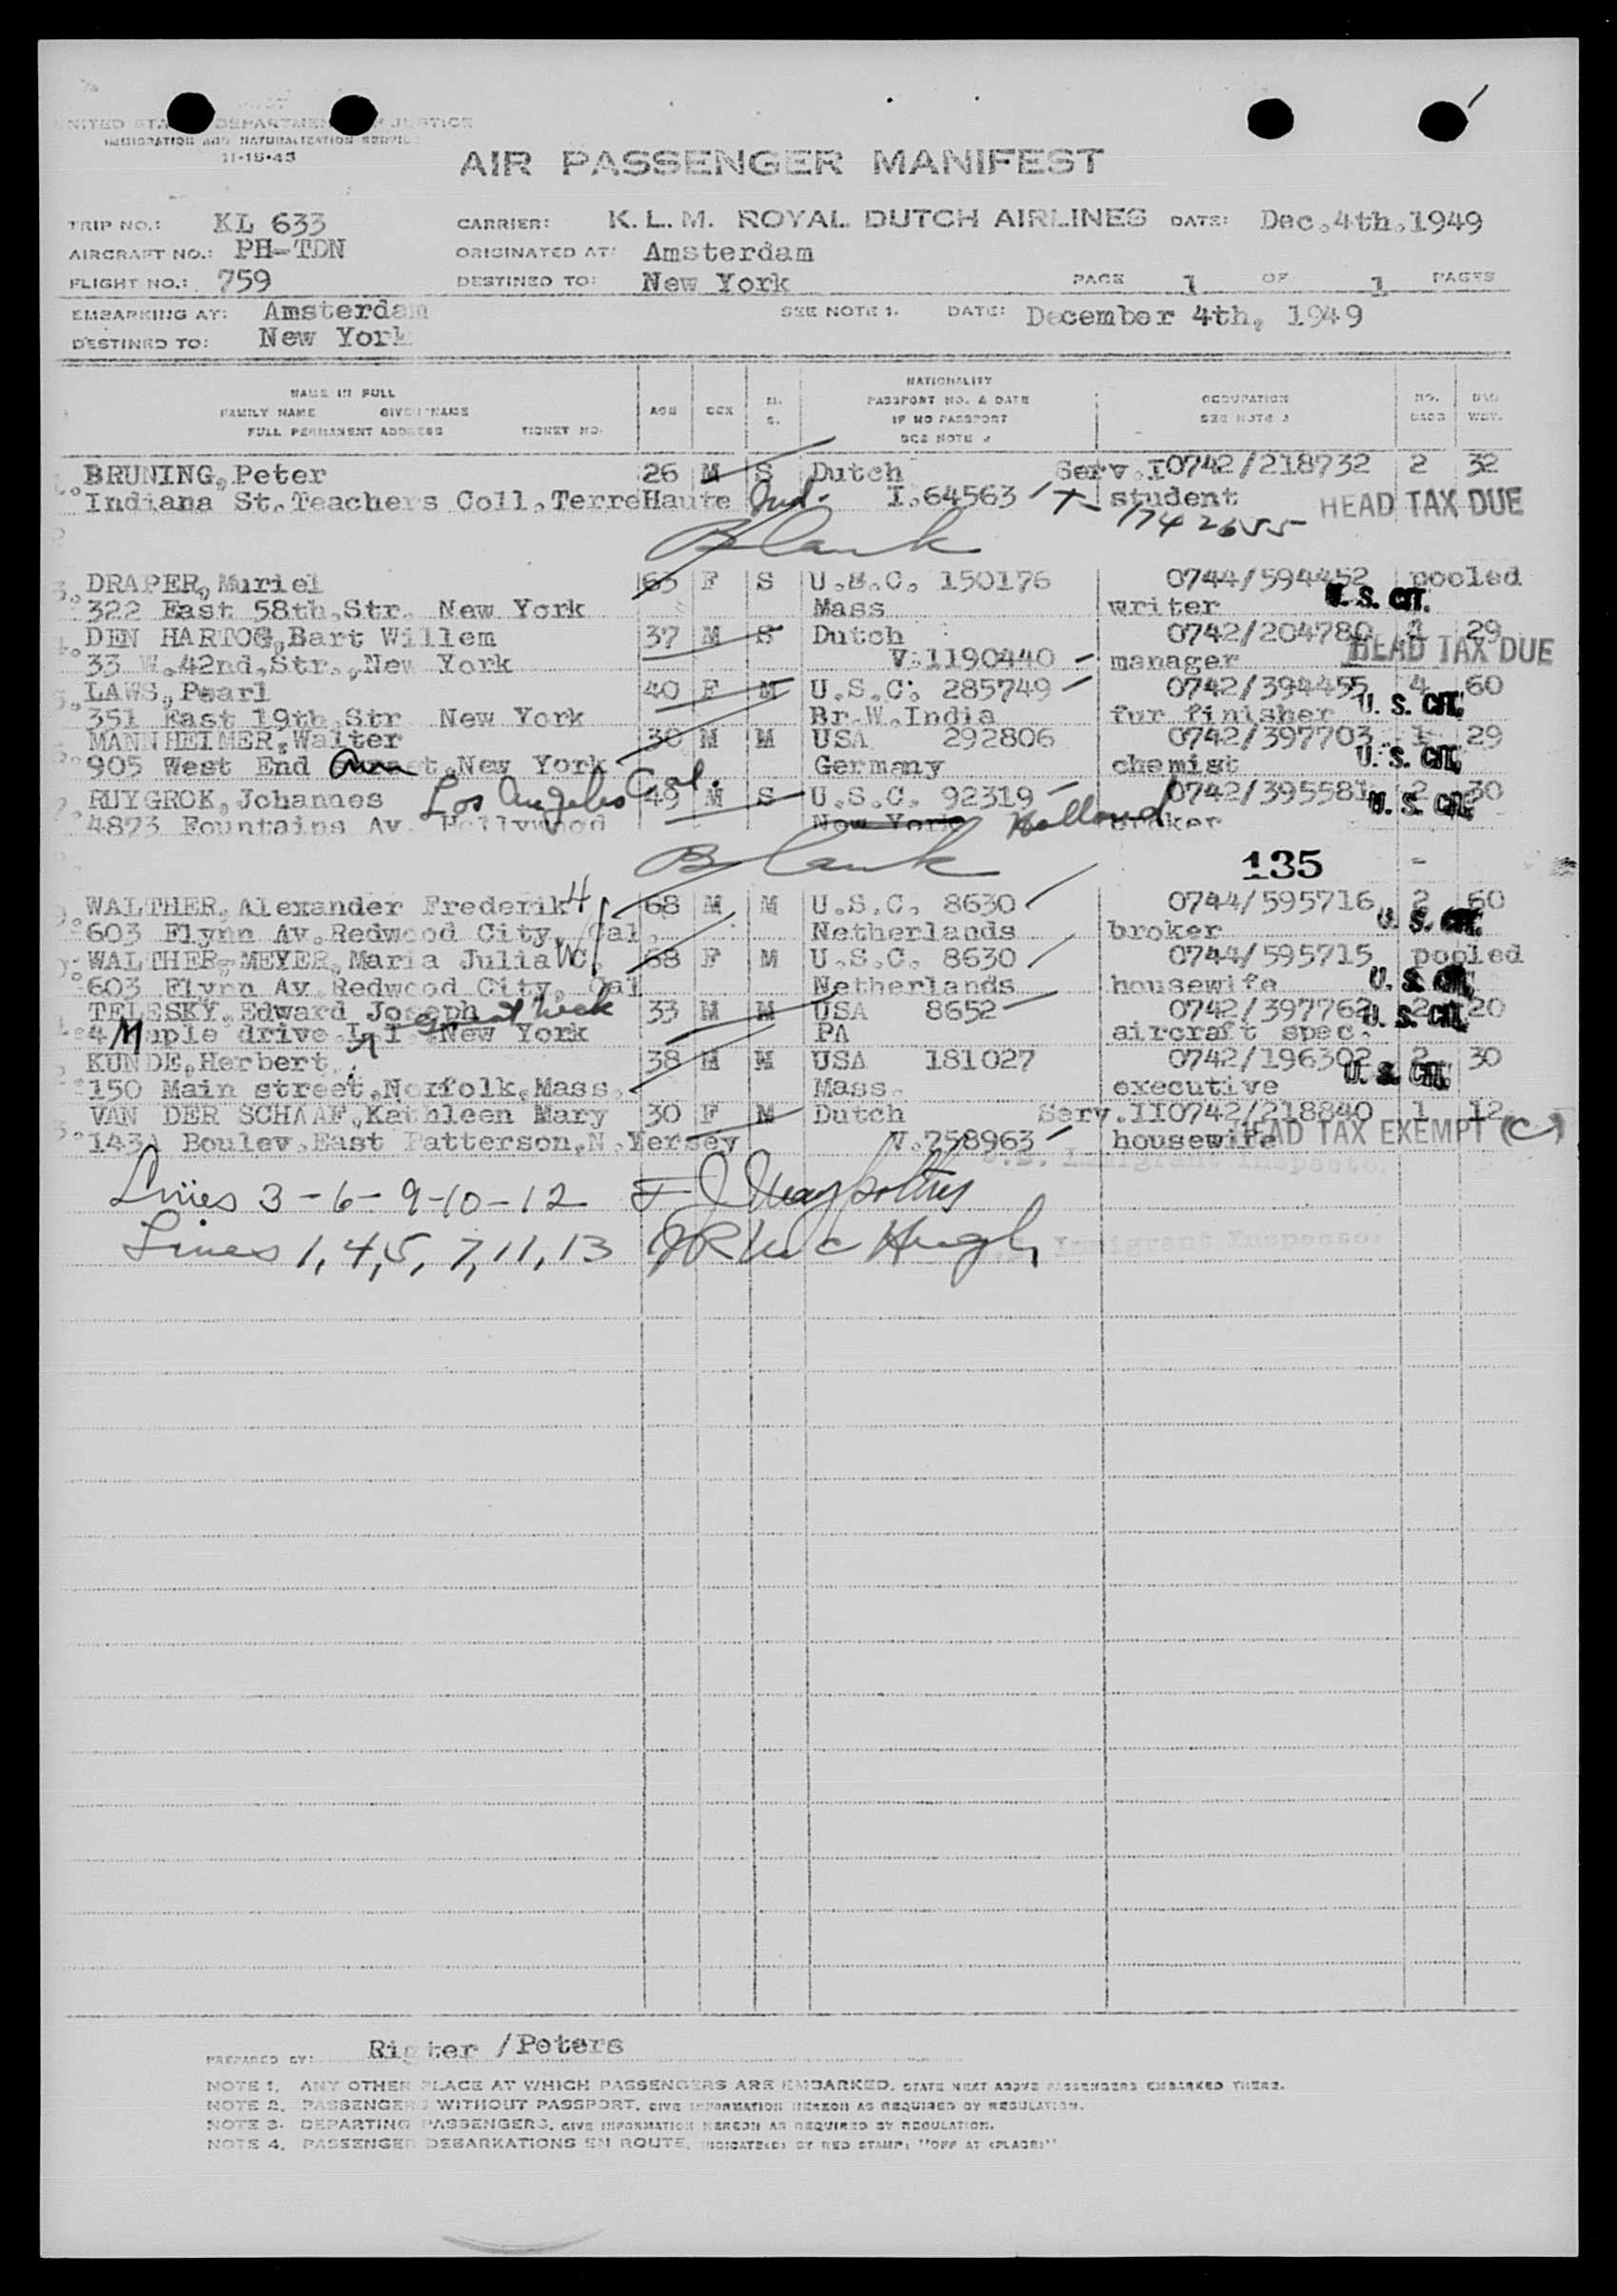 UNITED STATES DEPARTMENT OF JUSTICE
IMMIGRATION AND NATURALIZATION SERVICE
11-15-45
AIR PASSENGER MANIFEST
TRIP NO.: KL 633 CARRIER: K.L.M. ROYAL DUTCH AIRLINES DATE: Dec.4th.1949
AIRCRAFT NO.: PH-TDN ORIGINATED AT: Amsterdam
FLIGHT NO.: 759 DESTINED TO: New York PAGE 1 OF 1 PAGES
EMBARKING AT: Amsterdam SEE NOTE 1. DATE: December 4th, 1949
DESTINED TO: New York
NAME IN FULL
FAMILY NAME GIVEN NAME
FULL PERMANENT ADDRESS TICKET NO.
AGE SEX M. S.
NATIONALITY
PASSPORT NO. & DATE
IF NO PASSPORT
SEE NOTE 2
OCCUPATION
SEE NOTE 3
NO. BAGS BAG WGT.
1. BRUNING, Peter 26 M S Dutch Serv.I0742/218732 2 32
Indiana St.Teachers Coll,TerreHaute Ind. I.64563 student HEAD TAX DUE
1742655
Blank
3. DRAPER, Muriel 63 F S U.S.C. 150176 0744/594452 pooled
322 East 58th.Str. New York Mass writer U. S. CIT.
4. DEN HARTOG,Bart Willem 37 M S Dutch 0742/204780 1 29
33 W.42nd,Str.,New York V.1190440 manager HEAD TAX DUE
5. LAWS, Pearl 40 F M U.S.C. 285749 0742/394455 4 60
351 East 19th Str New York Br.W.India fur finisher U. S. CIT.
MANNHEIMER, Walter 30 M M USA 292806 0742/397703 1 29
905 West End New York Germany chemist U. S. CIT.
RUYGROK, Johannes Los Angeles Cal. 49 M S U.S.C. 92319 0742/395581 2 30
4873 Fountains Av. Hollywood New York Holland broker U. S. CIT.
Blank 135
WALTHER, Alexander Frederik H 68 M M U.S.C. 8630 0744/595716 2 60
603 Flynn Av.Redwood City, Cal. Netherlands broker U. S. CIT.
WALTHER-MEYER, Maria Julia WC 68 F M U.S.C. 8630 0744/595715 pooled
603 Flynn Av.Redwood City, Cal Netherlands housewife U. S. CIT.
TELESKY, Edward Joseph Great Neck 33 M M USA 8652 0742/397762 2 20
4 Maple drive L I New York PA aircraft spec. U. S. CIT.
KUNDE, Herbert 38 M M USA 181027 0742/196302 2 30
150 Main street,Norfolk,Mass. Mass. executive U. S. CIT.
VAN DER SCHAAF,Kathleen Mary 30 F M Dutch Serv.II0742/218840 1 12
143A Boulev.East Patterson,N.Yersey V.758963 housewife HEAD TAX EXEMPT (C)
U.S. Immigrant Inspector
Lines 3-6-9-10-12
Lines 1,4,5,7,11,13 JR McHugh
Immigrant Inspector
PREPARED BY: Rigter /Peters
NOTE 1. ANY OTHER PLACE AT WHICH PASSENGERS ARE EMBARKED, STATE NEXT ABOVE PASSENGERS EMBARKED THERE.
NOTE 2. PASSENGERS WITHOUT PASSPORT, GIVE INFORMATION HEREON AS REQUIRED BY REGULATION.
NOTE 3. DEPARTING PASSENGERS, GIVE INFORMATION HEREON AS REQUIRED BY REGULATION.
NOTE 4. PASSENGER DEBARKATIONS EN ROUTE, INDICATE(D) BY RED STAMP: "OFF AT (PLACE)"